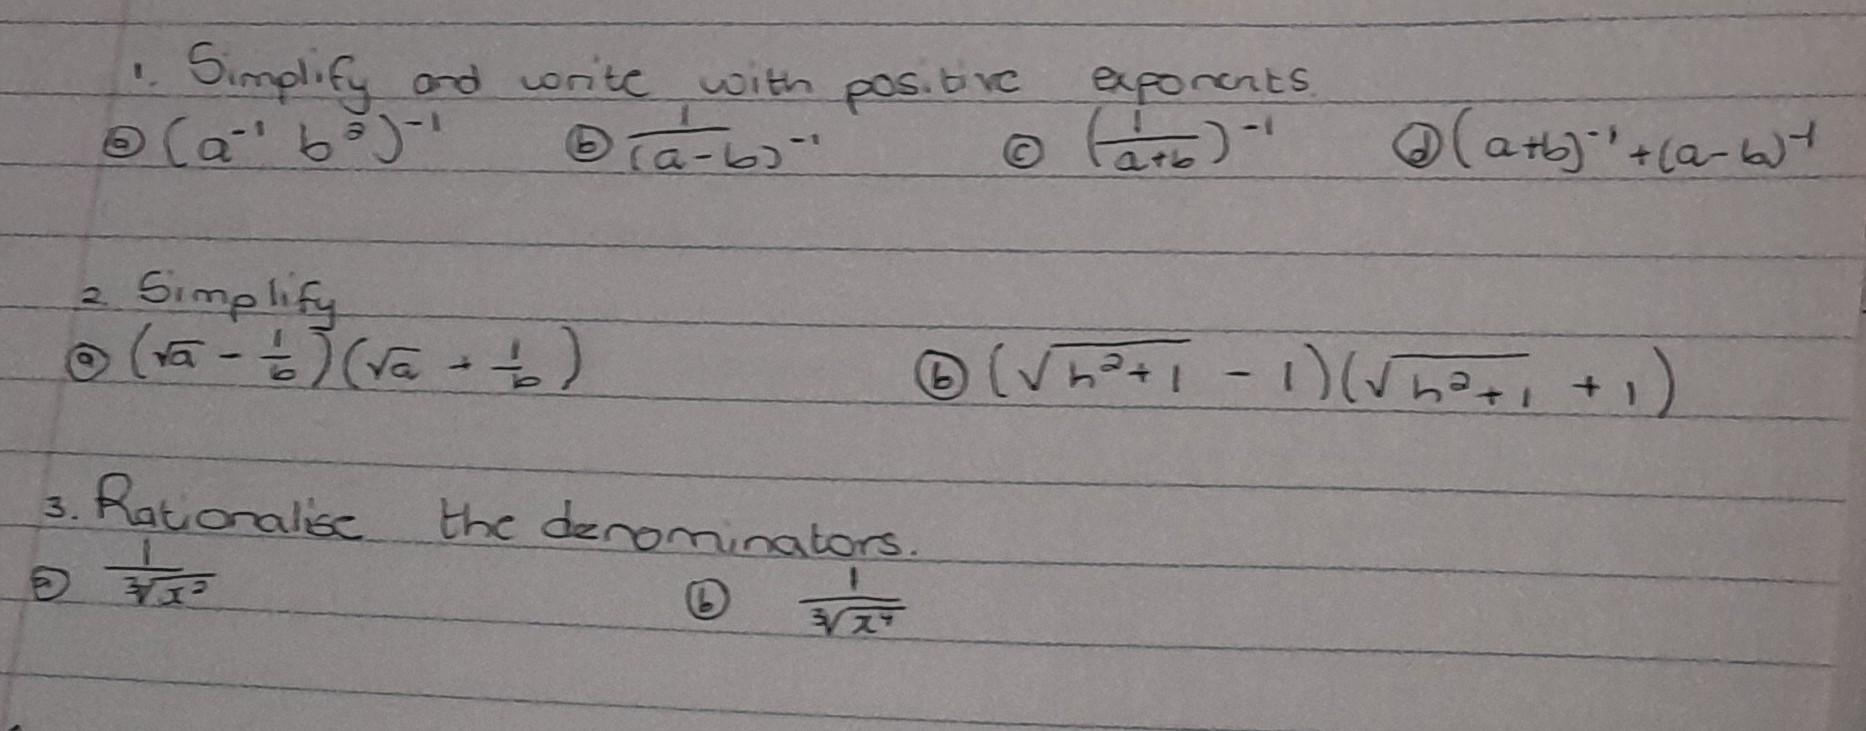 1. Simplify and write with positive exponents.
ⓐ (a⁻¹ b²)⁻¹ ⓑ 1/(a-b)⁻¹ ⓒ (1/(a+b))⁻¹ ⓓ (a+b)⁻¹ + (a-b)⁻¹
2. Simplify
ⓐ (√a - 1/b)(√a + 1/b) ⓑ (√(h²+1) - 1)(√(h²+1) + 1)
3. Rationalise the denominators.
ⓐ 1/∛(x²) ⓑ 1/∛(x⁴)